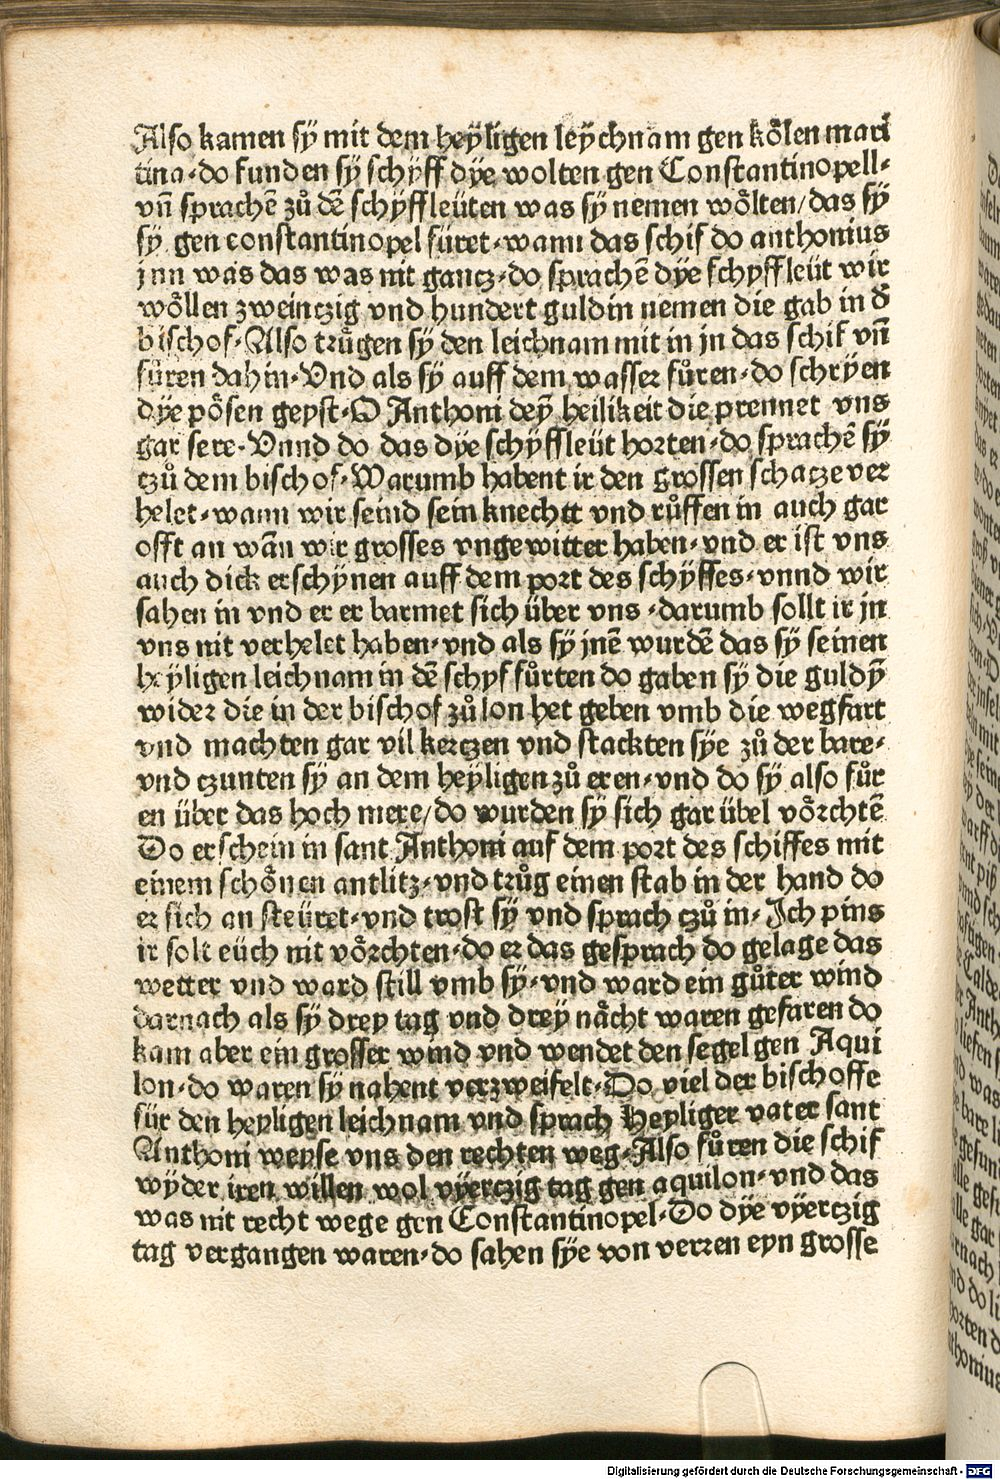 Also kamen sÿ mit dem heÿligen leÿchnam gen koͤlen mari
tina·do funden sÿ schÿff dÿe wolten gen Constantinopell·
vñ sprachē zuͦ dē schÿffleüten was sÿ nemen woͤlten/das sÿ
sÿ gen constantinopel füret·wann das schif do anthonius
jnn was das was nit gantz·do sprachē dÿe schyffleüt wir
woͤllen zweintzig vnd hundert guldin nemen die gab in d̄
bischof·Also truͤgen sÿ den leichnam mit in jn das schif vñ
fuͦren dahin·Vnd als sÿ auff dem wasser fuͦren·do schrÿen
dÿe poͤsen geyst·O Anthoni deÿ heilikeit die prennet vns
gar sere·Vnnd do das dÿe schÿffleüt horten·do sprachē sÿ
tzuͦ dem bischof·Warumb habent ir den grossen schatze ver
helet·wann wir seind sein knechtt vnd ruͦffen in auch gar
offt an wañ wir grosses vngewitter haben·vnd er ist vns
auch dick erschÿnen auff dem port des schÿffes·vnnd wir
sahen in vnd er er barmet sich über vns·darumb sollt ir jn
vns nit verhelet haben·vnd als sÿ jnē wurdē das sÿ seinen
heÿligen leichnam in dē schyf fuͦrten do gaben sÿ die guldÿ̄
wider die in der bischof zuͦ lon het geben vmb die wegfart
vnd machten gar vil kertzen vnd stackten sÿe zuͦ der bare·
vnd tzunten sÿ an dem heÿligen zuͦ eren·vnd do sÿ also fuͦr
en über das hoch mere/do wurden sÿ sich gar übel voͤrchtē
Do erschein in sant Anthoni auf dem port des schiffes mit
einem schoͤnen antlitz·vnd truͦg einen stab in der hand do
er sich an steüret·vnd trost sÿ vnd sprach tzuͦ in·Ich pins
ir solt eüch nit voͤrchten·do er das gesprach do gelage das
wetter vnd ward still vmb sÿ·vnd ward ein guͦter wind
darnach als sÿ drey tag vnd dreÿ naͤcht waren gefaren do
kam aber ein grosser wind vnd wendet den segel gen Aqui
lon·do waren sÿ nahent verzweifelt·Do viel der bischoffe
für den heyligen leichnam vnd sprach Heyliger vater sant
Anthoni weyse vns den rechten weg·Also fuͦren die schif
wÿder iren willen wol vÿertzig tag gen aquilon·vnd das
was nit recht wege gen Constantinopel·Do dÿe vÿertzig
tag vergangen waren·do sahen sÿe von verren eyn grosse
Digitalisierung gefördert durch die Deutsche Forschungsgemeinschaft - DFG